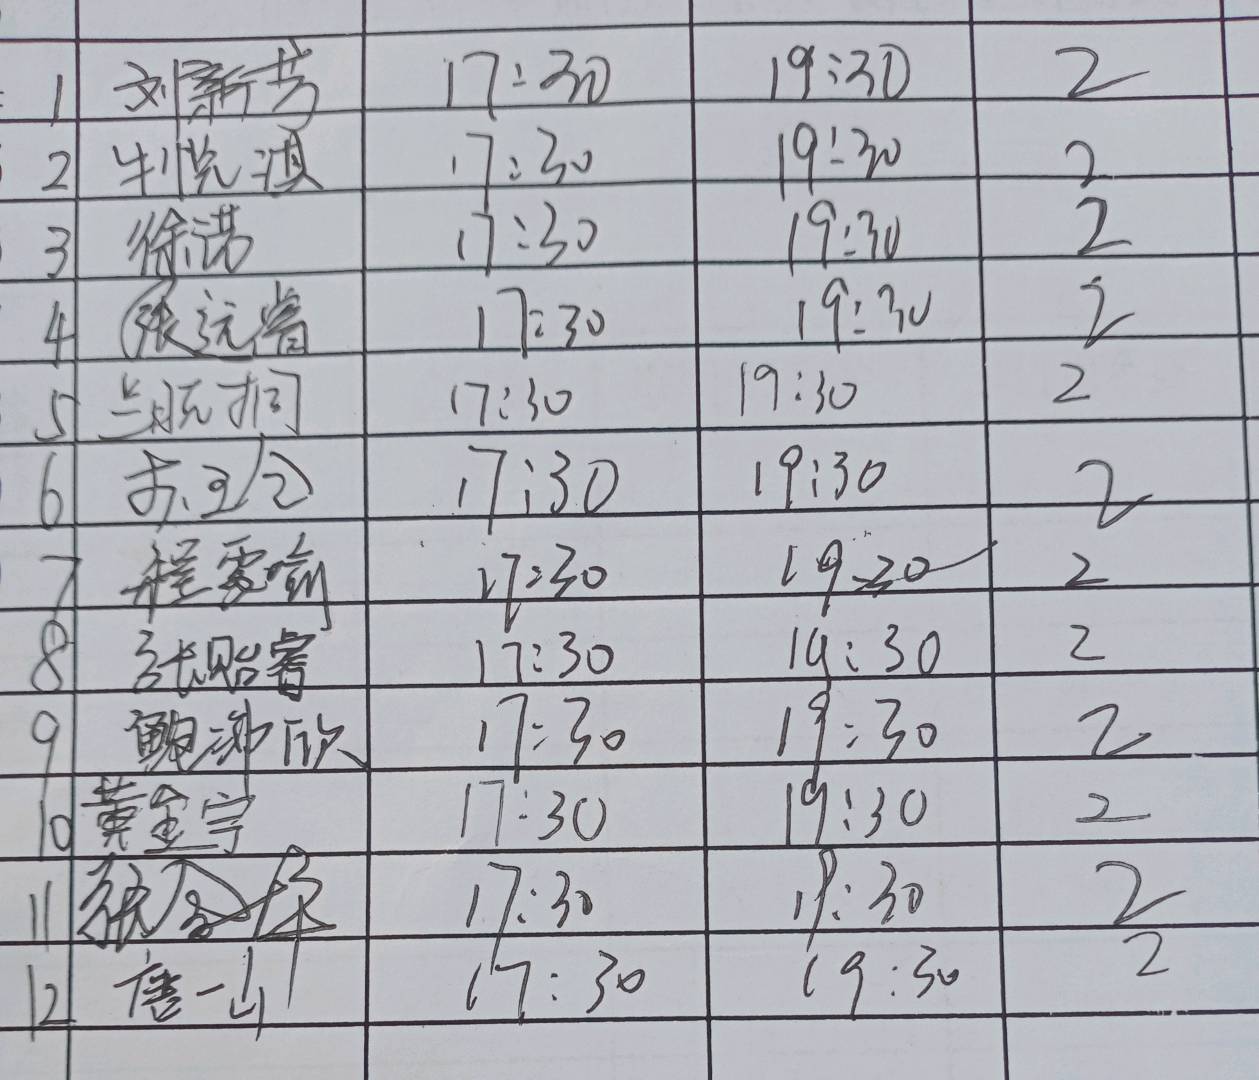 1 刘新芳 17:30 19:30 2
2 牛悦淇 17:30 19:30 2
3 徐诺 17:30 19:30 2
4 张远睿 17:30 19:30 2
5 兰航 17:30 19:30 2
6 17:30 19:30 2
7 程雯愉 17:30 19:30 2
8 张贻睿 17:30 19:30 2
9 鲍沛欣 17:30 19:30 2
10 黄金宇 17:30 19:30 2
11 17:30 19:30 2
12 唐一山 17:30 19:30 2